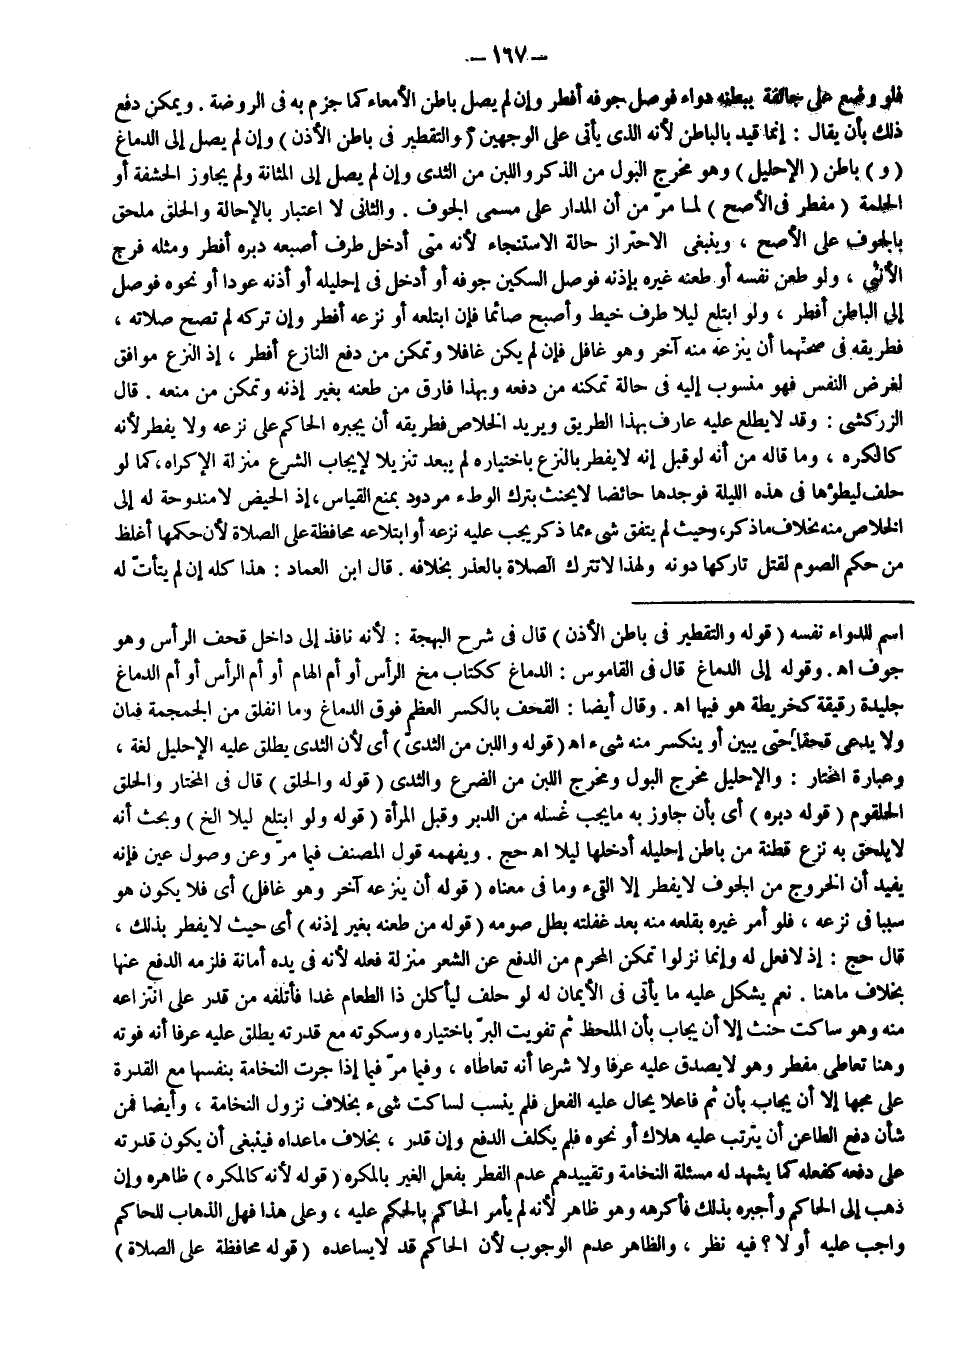 — ١٦٧ —
فلو وضع على جائفة ببطنه دواء فوصل جوفه أفطر وإن لم يصل باطن الأمعاء كما جزم به فى الروضة . ويمكن دفع
ذلك بأن يقال : إنما قيد بالباطن لأنه الذى يأتى على الوجهين ( والتقطير فى باطن الأذن ) وإن لم يصل إلى الدماغ
( و ) باطن ( الإحليل ) وهو مخرج البول من الذكر واللبن من الثدى وإن لم يصل إلى المثانة ولم يجاوز الحشفة أو
الحلمة ( مفطر فى الأصح ) لما مرّ من أن المدار على مسمى الجوف . والثانى لا اعتبار بالإحالة والحلق ملحق
بالجوف على الأصح ، وينبغى الاحتراز حالة الاستنجاء لأنه متى أدخل طرف أصبعه دبره أفطر ومثله فرج
الأنثى ، ولو طعن نفسه أو طعنه غيره بإذنه فوصل السكين جوفه أو أدخل فى إحليله أو أذنه عودا أو نحوه فوصل
إلى الباطن أفطر ، ولو ابتلع ليلا طرف خيط وأصبح صائما فإن ابتلعه أو نزعه أفطر وإن تركه لم تصح صلاته ،
فطريقه فى صحتهما أن ينزعه منه آخر وهو غافل فإن لم يكن غافلا وتمكن من دفع النازع أفطر ، إذ النزع موافق
لغرض النفس فهو منسوب إليه فى حالة تمكنه من دفعه وبهذا فارق من طعنه بغير إذنه وتمكن من منعه . قال
الزركشى : وقد لايطلع عليه عارف بهذا الطريق ويريد الخلاص فطريقه أن يجبره الحاكم على نزعه ولا يفطر لأنه
كالمكره ، وما قاله من أنه لوقيل إنه لايفطر بالنزع باختياره لم يبعد تنزيلا لإيجاب الشرع منزلة الإكراه، كما لو
حلف ليطؤها فى هذه الليلة فوجدها حائضا لايحنث بترك الوطء مردود بمنع القياس، إذ الحيض لامندوحة له إلى
الخلاص منه بخلاف ماذكر، وحيث لم يتفق شىء مما ذكر يجب عليه نزعه أو ابتلاعه محافظة على الصلاة لأن حكمها أغلظ
من حكم الصوم لقتل تاركها دونه ولهذا لاتترك الصلاة بالعذر بخلافه . قال ابن العماد : هذا كله إن لم يتأتّ له
اسم للدواء نفسه ( قوله والتقطير فى باطن الأذن ) قال فى شرح البهجة : لأنه نافذ إلى داخل قحف الرأس وهو
جوف اه . وقوله إلى الدماغ قال فى القاموس : الدماغ ككتاب مخ الرأس أو أم الهام أو أم الرأس أو أم الدماغ
جليدة رقيقة كخريطة هو فيها اه . وقال أيضا : القحف بالكسر العظم فوق الدماغ وما انفلق من الجمجمة فبان
ولا يدعى قحفا حتى يبين أو ينكسر منه شىء اه ( قوله واللبن من الثدى ) أى لأن الثدى يطلق عليه الإحليل لغة ،
وعبارة المختار : والإحليل مخرج البول ومخرج اللبن من الضرع والثدى ( قوله والحلق ) قال فى المختار والحلق
الحلقوم ( قوله دبره ) أى بأن جاوز به مايجب غسله من الدبر وقبل المرأة ( قوله ولو ابتلع ليلا الخ ) وبحث أنه
لايلحق به نزع قطنة من باطن إحليله أدخلها ليلا اه حج . ويفهمه قول المصنف فيما مرّ وعن وصول عين فإنه
يفيد أن الخروج من الجوف لايفطر إلا القىء وما فى معناه ( قوله أن ينزعه آخر وهو غافل) أى فلا يكون هو
سببا فى نزعه ، فلو أمر غيره بقلعه منه بعد غفلته بطل صومه ( قوله من طعنه بغير إذنه ) أى حيث لايفطر بذلك ،
قال حج : إذ لافعل له وإنما نزلوا تمكن المحرم من الدفع عن الشعر منزلة فعله لأنه فى يده أمانة فلزمه الدفع عنها
بخلاف ماهنا . نعم يشكل عليه ما يأتى فى الأيمان له لو حلف ليأكلن ذا الطعام غدا فأتلفه من قدر على انتزاعه
منه وهو ساكت حنث إلا أن يجاب بأن الملحظ ثم تفويت البرّ باختياره وسكوته مع قدرته يطلق عليه عرفا أنه فوته
وهنا تعاطى مفطر وهو لايصدق عليه عرفا ولا شرعا أنه تعاطاه ، وفيما مرّ فيما إذا جرت النخامة بنفسها مع القدرة
على مجها إلا أن يجاب بأن ثم فاعلا يحال عليه الفعل فلم ينسب لساكت شىء بخلاف نزول النخامة ، وأيضا فمن
شأن دفع الطاعن أن يترتب عليه هلاك أو نحوه فلم يكلف الدفع وإن قدر ، بخلاف ماعداه فينبغى أن يكون قدرته
على دفعه كفعله كما يشهد له مسئلة النخامة وتقييدهم عدم الفطر بفعل الغير بالمكره ( قوله لأنه كالمكره ) ظاهره وإن
ذهب إلى الحاكم وأجبره بذلك فأكرهه وهو ظاهر لأنه لم يأمر الحاكم بالحكم عليه ، وعلى هذا فهل الذهاب للحاكم
واجب عليه أو لا ؟ فيه نظر ، والظاهر عدم الوجوب لأن الحاكم قد لايساعده ( قوله محافظة على الصلاة )